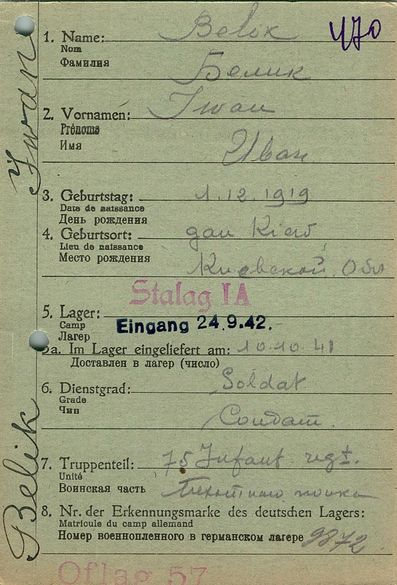 470
1. Name: Belik
Nom
Фамилия Белик
2. Vornamen: Iwan
Prénoms
Имя Иван
3. Geburtstag: 1.12.1919
Date de naissance
День рождения
4. Geburtsort: Kiew
Lieu de naissance
Место рождения Киевской Обл
Stalag IA
5. Lager: Eingang 24.9.42.
Camp
Лагер
5a. Im Lager eingeliefert am: 10.10.41
Доставлен в лагер (число)
6. Dienstgrad: Soldat
Grade
Чин Солдат
7. Truppenteil: 75 Infant regt.
Unité
Воинская часть
8. Nr. der Erkennungsmarke des deutschen Lagers:
Matricule du camp allemand
Номер военнопленного в германском лагере 9872
Oflag 57
Belik Iwan